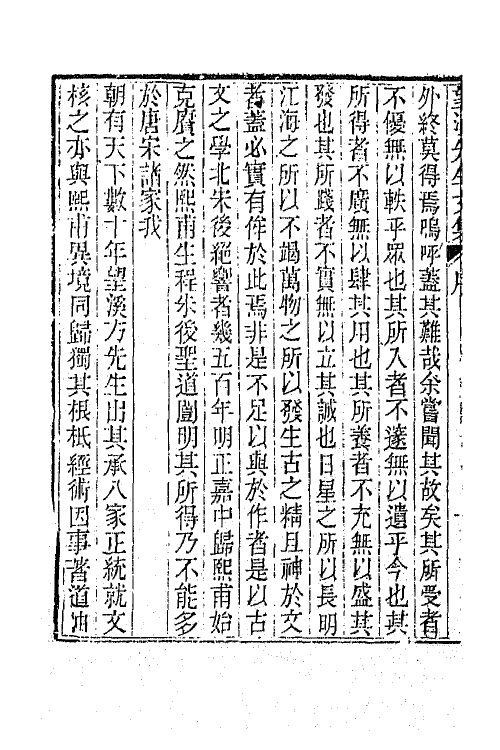 望溪先生文集 序
外終莫得焉嗚呼蓋其難哉余嘗聞其故矣其所受者
不優無以軼乎眾也其所入者不邃無以遺乎今也其
所得者不廣無以肆其用也其所養者不充無以盛其
發也其所踐者不實無以立其誠也日星之所以長明
江海之所以不竭萬物之所以發生古之精且神於文
者蓋必實有侔於此焉非是不足以與於作者是以古
文之學北宋後絕響者幾五百年明正嘉中歸熙甫始
克賡之然熙甫生程朱後聖道闡明其所得乃不能多
於唐宋諸家我
朝有天下數十年望溪方先生出其承八家正統就文
核之亦與熙甫異境同歸獨其根柢經術因事著道油